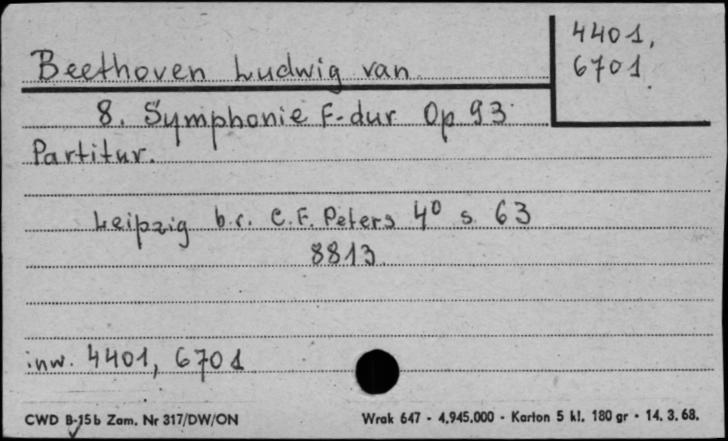 4401,
6701
Beethoven Ludwig van
8. Symphonie F-dur Op 93
Partitur.
Leipzig b.r. C.F. Peters 4° s 63
8813
inw. 4401, 6701
CWD B-15b Zam. Nr 317/DW/ON
Wrak 647 - 4.945.000 - Karton 5 kl. 180 gr - 14. 3. 68.